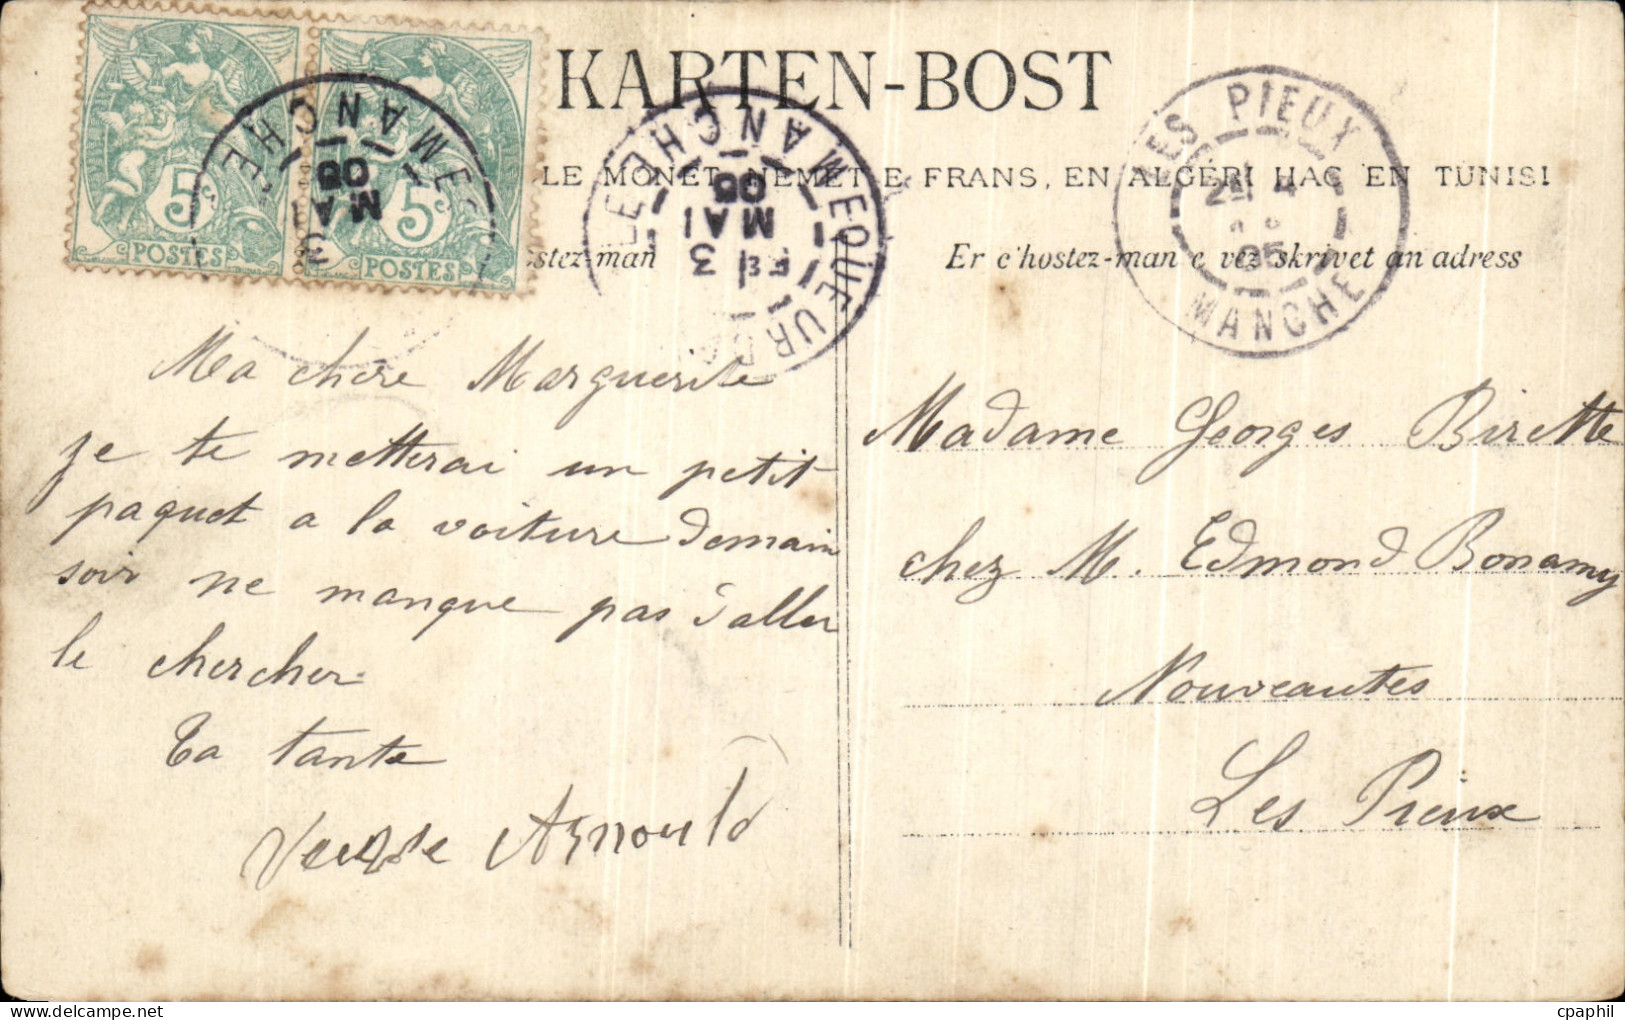 KARTEN-BOST
LE MONET NEMET E FRANS, EN ALGERI HAG EN TUNISI
Er c'hostez-man e vez skrivet an adress
5c
POSTES
5c
POSTES
MANCHE
3
MAI
05
MANCHE
3
MAI
05
LES PIEUX
4
05
MANCHE
Ma chere Marguerite
je te metterai un petit
paquet a la voiture demain
soir ne manque pas d'aller
le chercher
Ta tante
Veuve Arnould
Madame Georges Birette
chez M. Edmond Bonamy
Nouveautes
Les Pieux
cpaphil